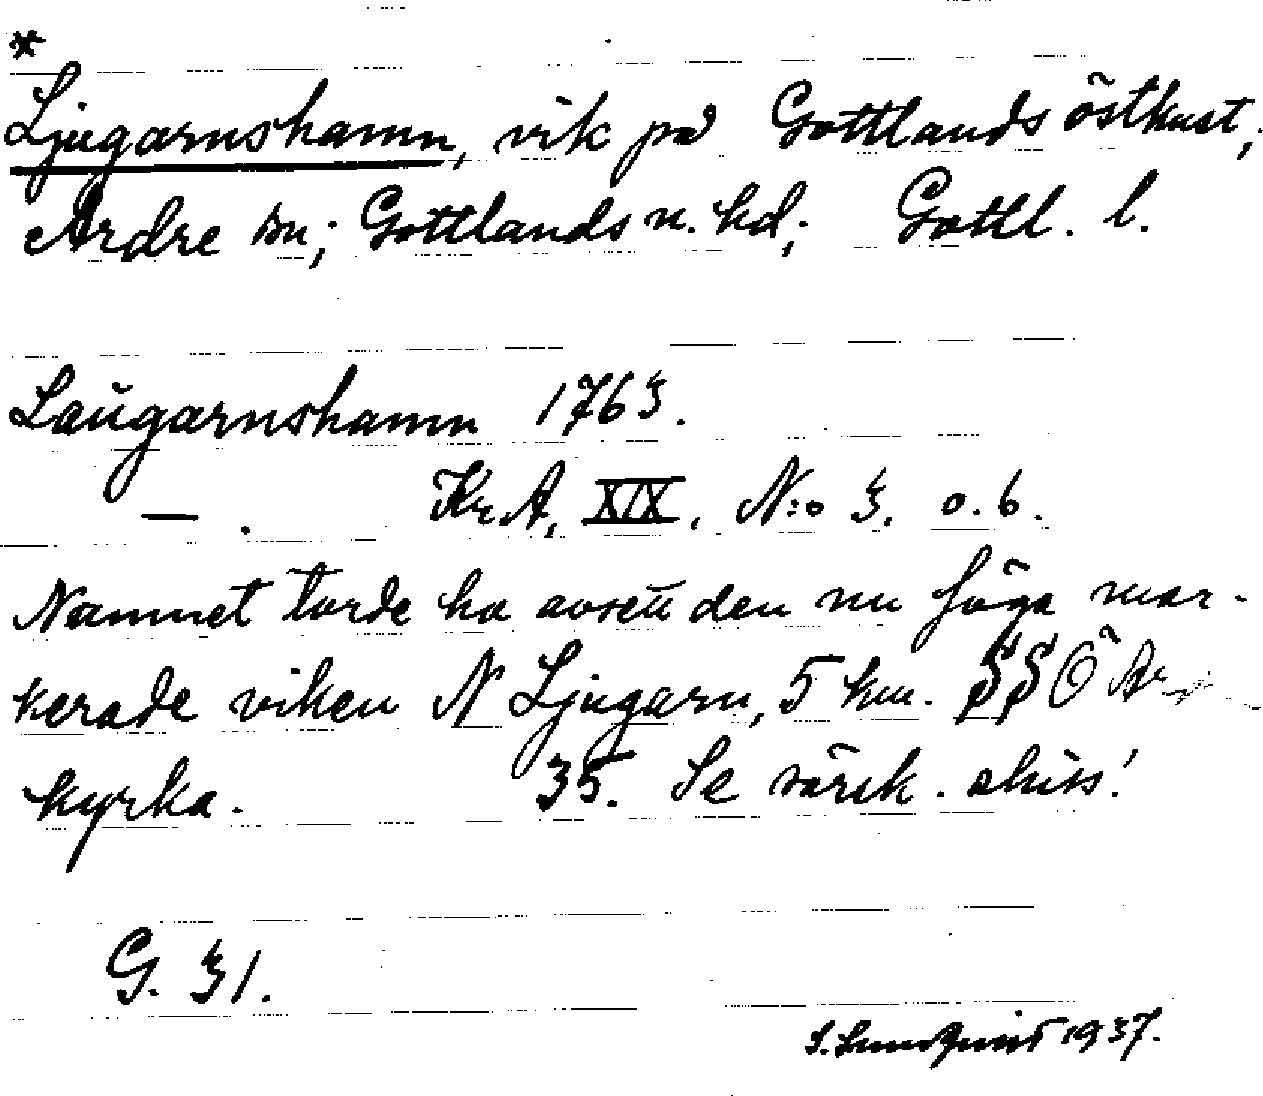 *
Ljugarnshamn, vik på Gottlands östkust,
Ardre sn; Gottlands n. hd; Gottl. l.
Laŭgarnshamn 1763.
— . Kr. A, XIX, N:o 3. o. 6.
Namnet torde ha avsett den nu föga mar-
kerade viken N Ljugarn, 5 km. SSÖ Ar
kyrka. 35. Se särsk. skiss!
G. 31.
S. Lundquist 1937.